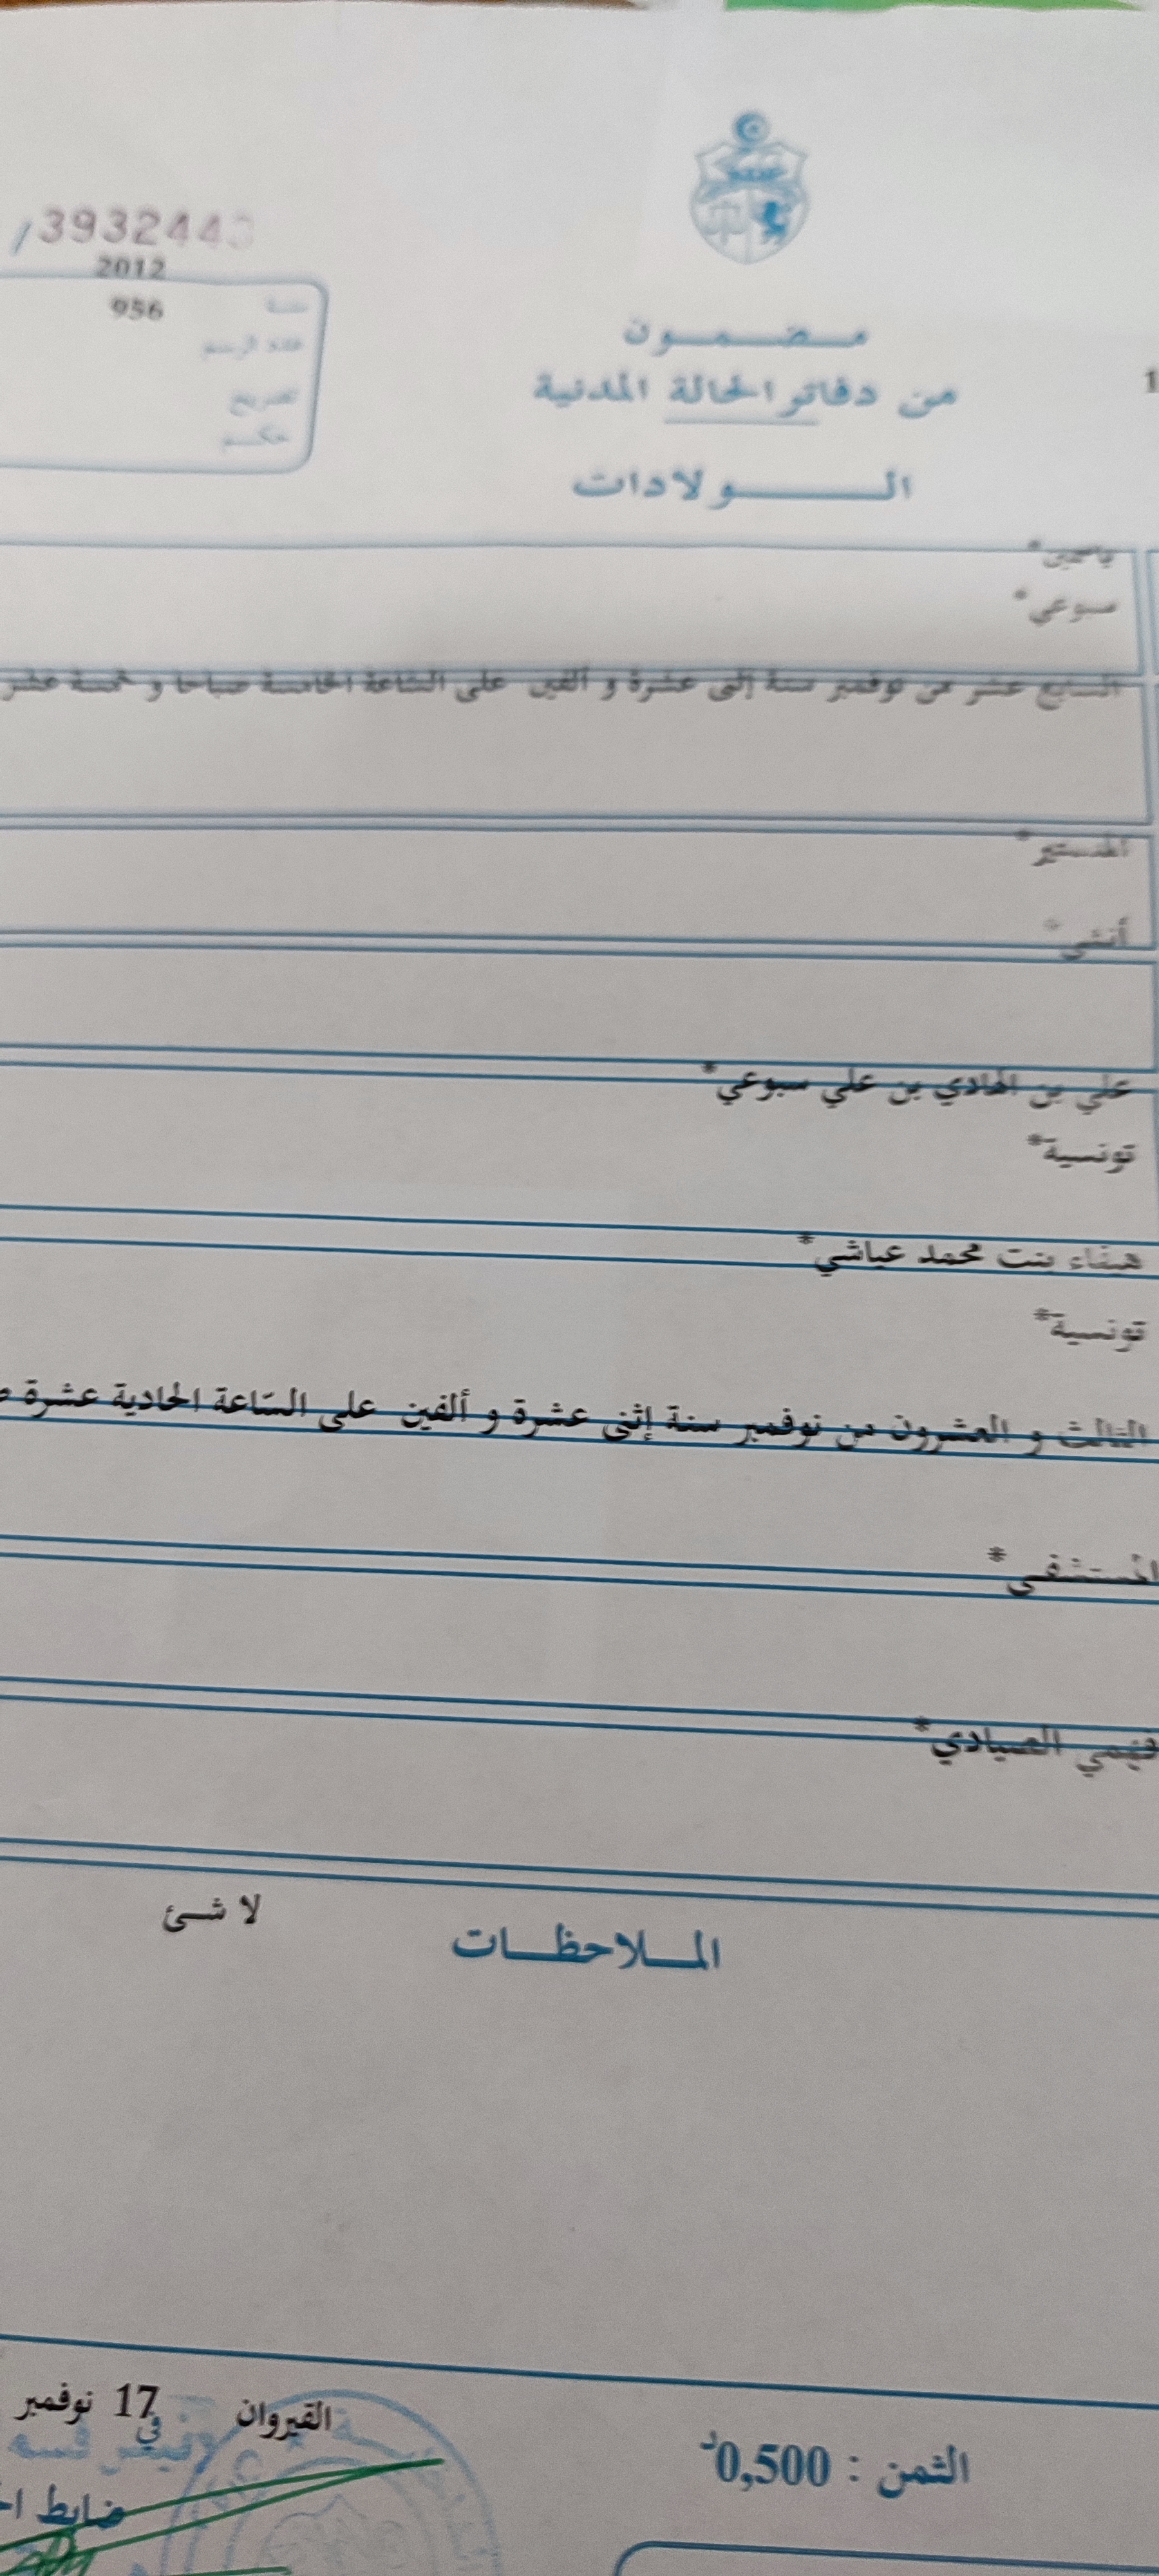 /3932443
2012
956
سنة
عدد الرسم
تصريح
حكم
مضمون
من دفاتر الحالة المدنية
1
الولادات
ياسمين*
سبوعي*
السابع عشر من نوفمبر سنة إثنى عشرة و ألفين على الساعة الخامسة صباحا و خمسة عشر
المنستير*
أنثى*
علي بن الهادي بن علي سبوعي*
تونسية*
هيفاء بنت محمد عياشي*
تونسية*
الثالث و العشرون من نوفمبر سنة إثنى عشرة و ألفين على الساعة الحادية عشرة ص
المستشفى*
فهمي الصيادي*
لا شئ
الملاحظات
القيروان في 17 نوفمبر
ضابط
الثمن : 0,500د